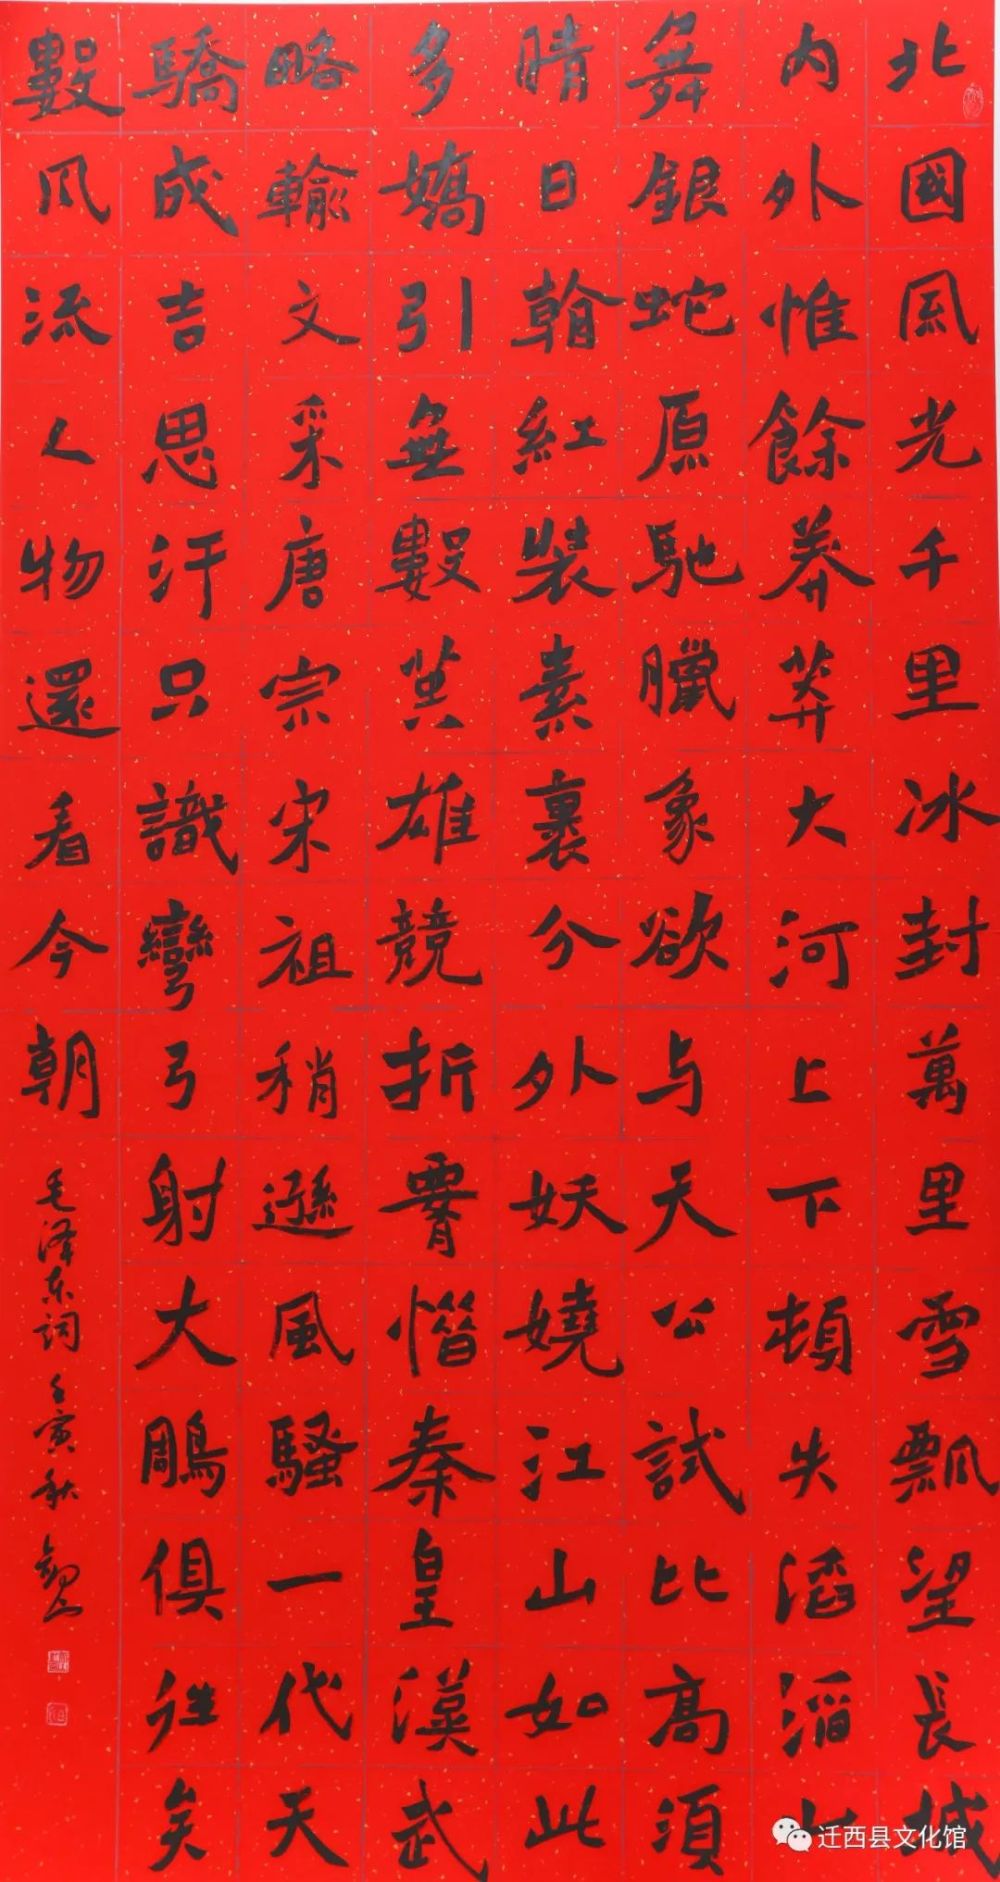 北國風光千里冰封萬里雪飄望長城
内外惟餘莽莽大河上下頓失滔滔山
舞銀蛇原馳臘象欲与天公試比高須
晴日看紅裝素裹分外妖嬈江山如此
多嬌引無數英雄競折腰惜秦皇漢武
略輸文采唐宗宋祖稍遜風騷一代天
驕成吉思汗只識彎弓射大鵰俱往矣
數风流人物還看今朝
毛泽东词 壬寅秋
迁西县文化馆